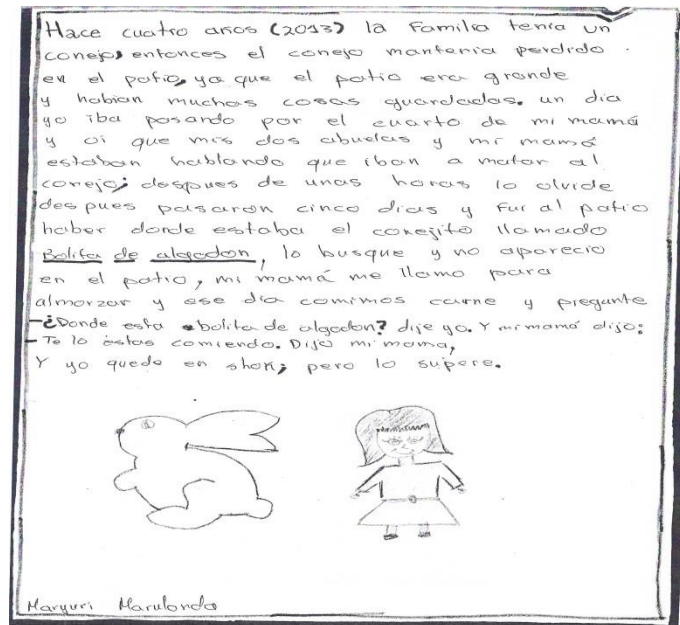 Hace cuatro años (2013) la Familia tenía un
conejo, entonces el conejo mantenia perdido
en el patio, ya que el patio era grande
y habian muchas cosas guardadas. un día
yo iba pasando por el cuarto de mi mamá
y oi que mis dos abuelas y mi mamá
estaban hablando que iban a matar al
conejo; despues de unas horas lo olvide
des pues pasaron cinco dias y fui al patio
haber donde estaba el conejito llamado
Bolita de algodon, lo busque y no aparecio
en el patio, mi mamá me llamo para
almorzar y ese día comimos carne y pregunte
-¿Donde esta bolita de algodon? dije yo. Y mi mamá dijo:
- Te lo estas comiendo. Dijo mi mama,
Y yo quede en shok; pero lo supere.
Maryuri Marulanda